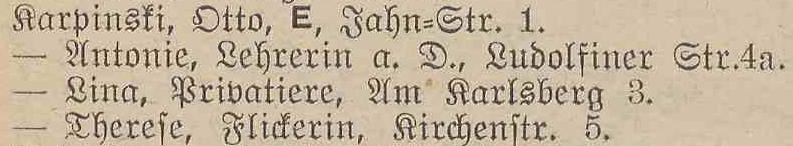 Karpinski, Otto, E, Jahn=Str. 1.
— Antonie, Lehrerin a. D., Ludolfiner Str.4a.
— Lina, Privatiere, Am Karlsberg 3.
— Therese, Flickerin, Kirchenstr. 5.